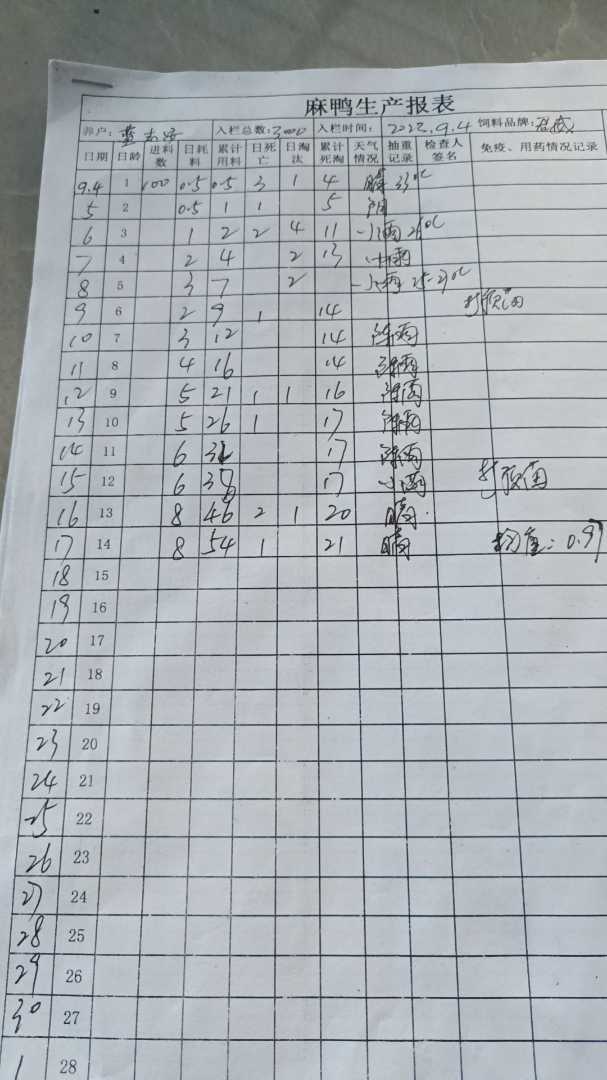 麻鸭生产报表
养户: 入栏总数:3000 入栏时间: 2022.9.4 饲料品牌:
日期 日龄 进料数 日耗料 累计用料 日死亡 日淘汰 累计死淘 天气情况 抽重记录 检查人签名 免疫、用药情况记录
9.4 1 100 0.5 0.5 3 1 4 晴 33℃
5 2 0.5 1 1 5 阴
6 3 1 2 2 4 11 小雨 26℃
7 4 2 4 2 13 小雨
8 5 3 7 2 小雨
9 6 2 9 1 14
10 7 3 12 14 阵雨
11 8 4 16 14 阵雨
12 9 5 21 1 1 16 阵雨
13 10 5 26 1 17 阵雨
14 11 6 32 17 阵雨
15 12 6 38 17 小雨
16 13 8 46 2 1 20 晴
17 14 8 54 1 21 晴 均重:0.97
18 15
19 16
20 17
21 18
22 19
23 20
24 21
25 22
26 23
27 24
28 25
29 26
30 27
1 28